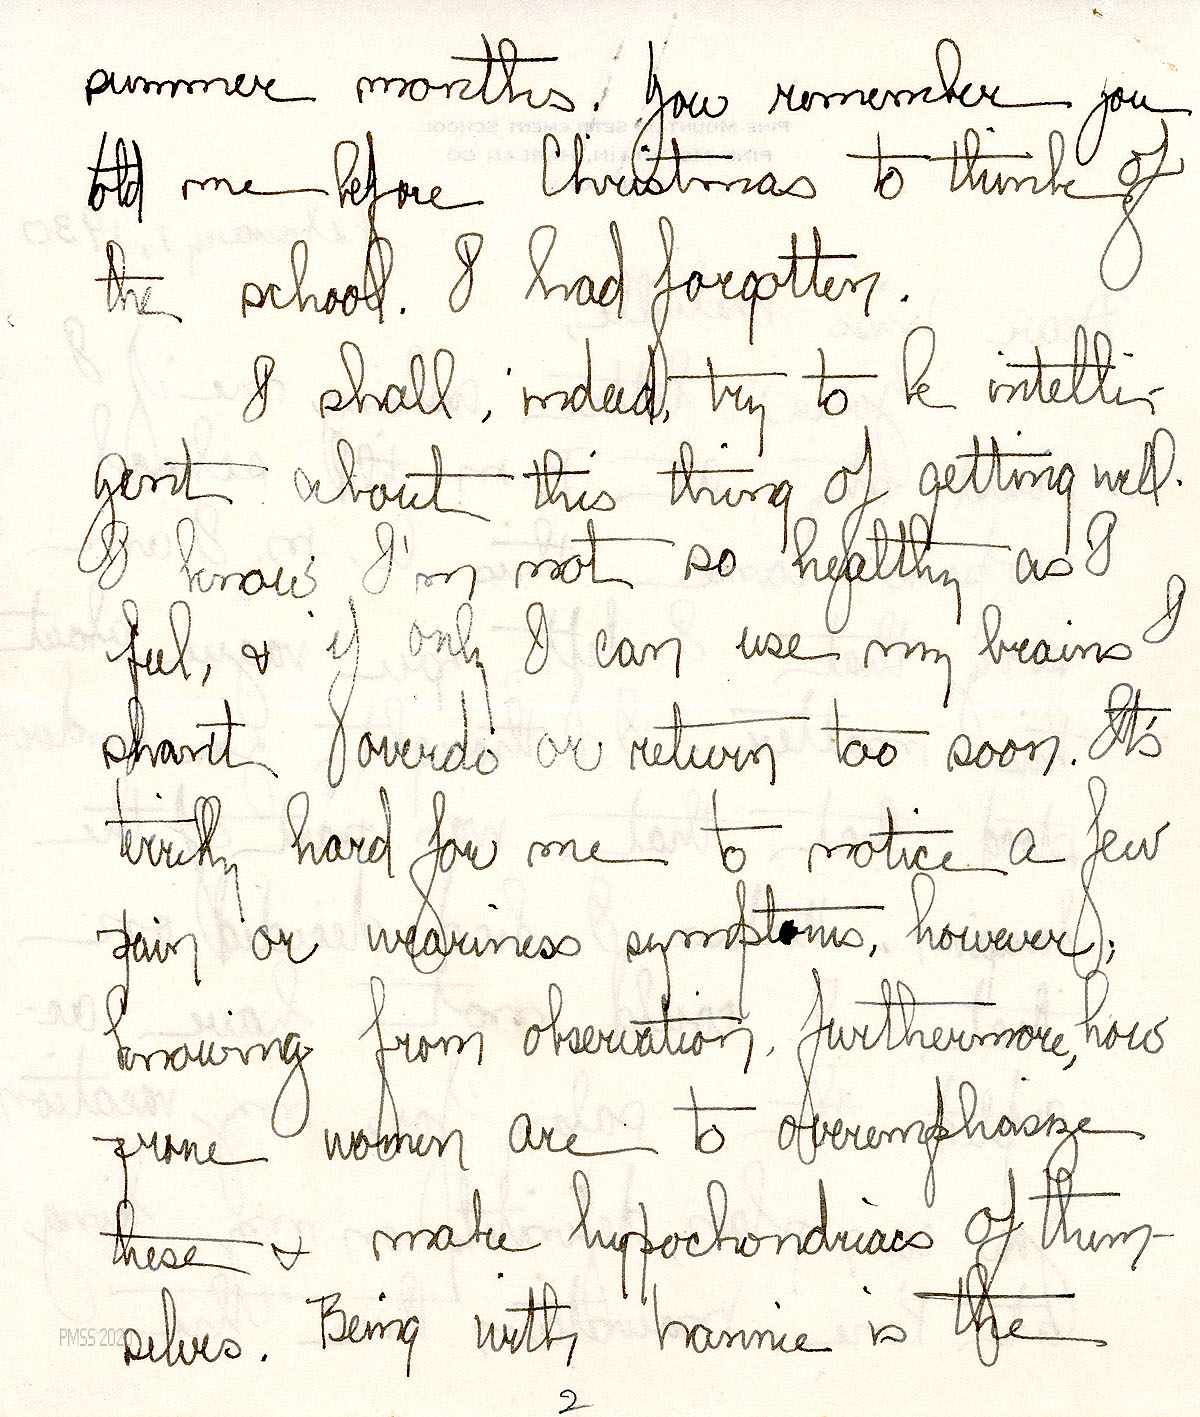 summer months. You remember you
told me before Christmas to think of
the school. I had forgotten.
I shall, indeed, try to be intelli-
gent about this thing of getting well.
I know I'm not so healthy as I
feel, & if only I can use my brains I
shan't overdo or return too soon. It's
terribly hard for me to notice a few
pain or weariness symptoms, however;
knowing from observation, furthermore, how
prone women are to overemphasize
these & make hypochondriacs of them-
selves. Being with Frannie is the
PMSS 202
2